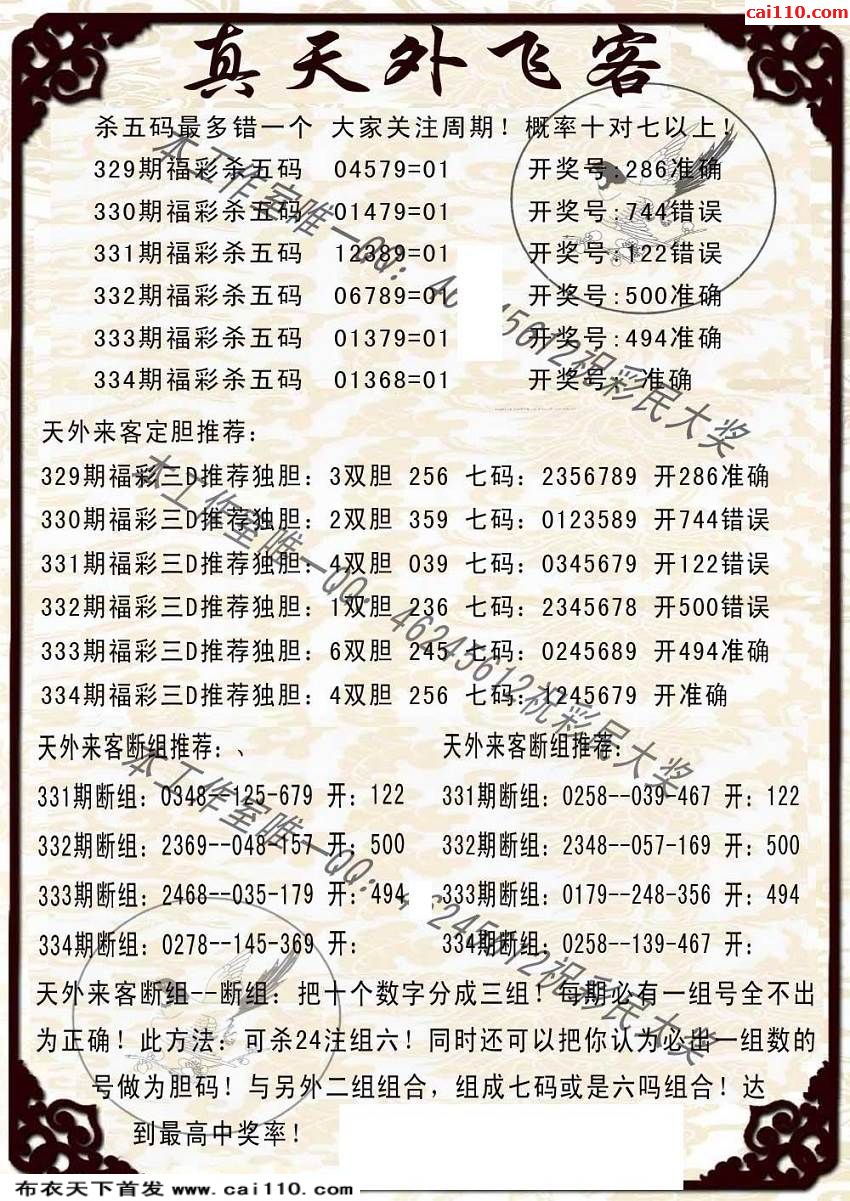 cai110.com
真天外飞客
杀五码最多错一个 大家关注周期！概率十对七以上！
329期福彩杀五码 04579=01 开奖号:286准确
330期福彩杀五码 01479=01 开奖号:744错误
331期福彩杀五码 12389=01 开奖号:122错误
332期福彩杀五码 06789=01 开奖号:500准确
333期福彩杀五码 01379=01 开奖号:494准确
334期福彩杀五码 01368=01 开奖号: 准确
天外来客定胆推荐：
329期福彩三D推荐独胆：3双胆 256 七码：2356789 开286准确
330期福彩三D推荐独胆：2双胆 359 七码：0123589 开744错误
331期福彩三D推荐独胆：4双胆 039 七码：0345679 开122错误
332期福彩三D推荐独胆：1双胆 236 七码：2345678 开500错误
333期福彩三D推荐独胆：6双胆 245 七码：0245689 开494准确
334期福彩三D推荐独胆：4双胆 256 七码：1245679 开准确
天外来客断组推荐：、 天外来客断组推荐：
331期断组：0348--125-679 开：122 331期断组：0258--039-467 开：122
332期断组：2369--048-157 开：500 332期断组：2348--057-169 开：500
333期断组：2468--035-179 开：494 333期断组：0179--248-356 开：494
334期断组：0278--145-369 开： 334期断组：0258--139-467 开：
天外来客断组--断组：把十个数字分成三组！每期必有一组号全不出
为正确！此方法：可杀24注组六！同时还可以把你认为必出一组数的
号做为胆码！与另外二组组合，组成七码或是六吗组合！达
到最高中奖率！
本工作室唯一QQ：46245612祝彩民大奖
本工作室唯一QQ：46245612祝彩民大奖
本工作室唯一QQ：46245612祝彩民大奖
布衣天下首发 www.cai110.com